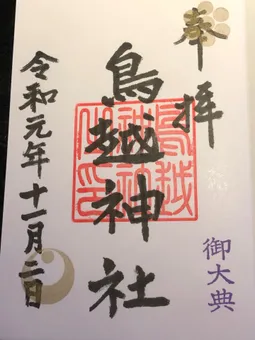 奉拝
鳥越神社
鳥越神社之印
御大典
令和元年十一月二日